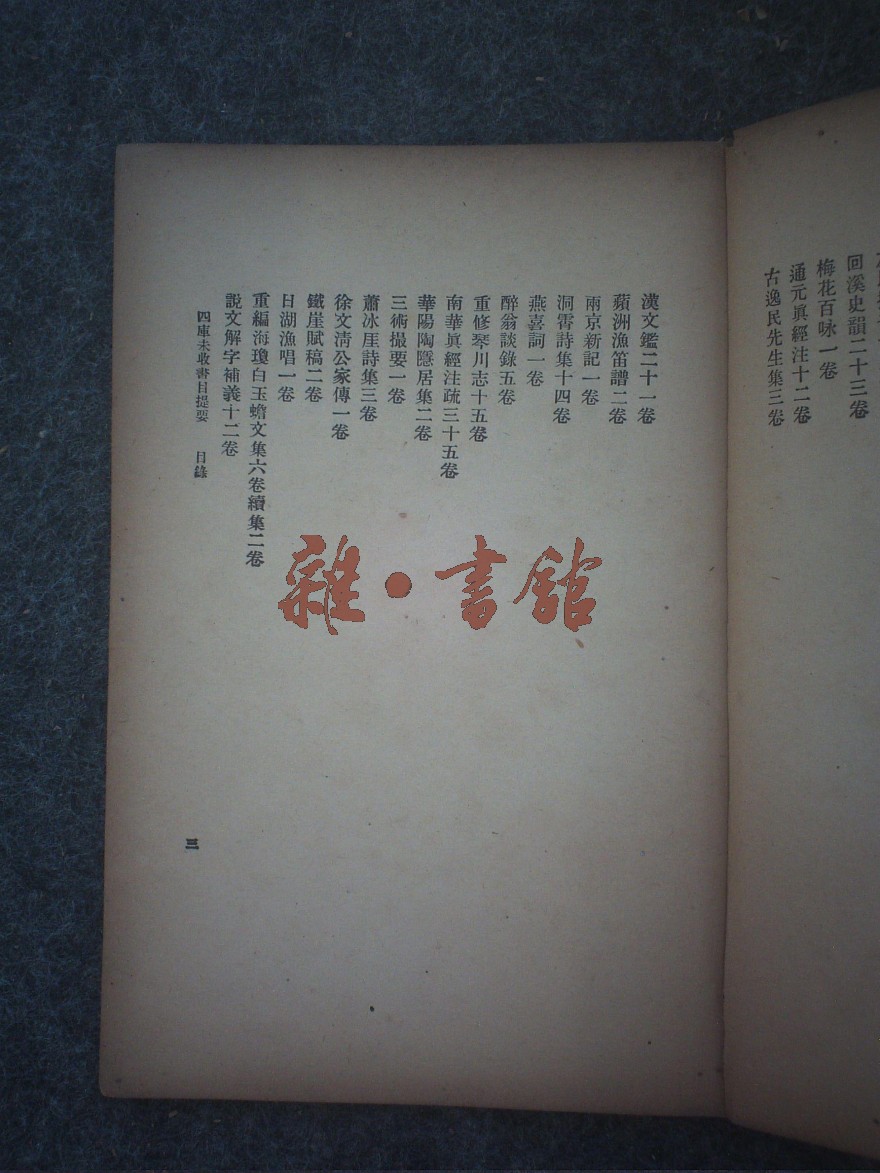 回溪史韻二十三卷
梅花百咏一卷
通元眞經注十二卷
古逸民先生集三卷
漢文鑑二十一卷
蘋洲漁笛譜二卷
兩京新記一卷
洞霄詩集十四卷
燕喜詞一卷
醉翁談錄五卷
重修琴川志十五卷
南華眞經注疏三十五卷
華陽陶隱居集二卷
三術撮要一卷
蕭冰厓詩集三卷
徐文淸公家傳一卷
鐵崖賦稿二卷
日湖漁唱一卷
重編海瓊白玉蟾文集六卷續集二卷
説文解字補義十二卷
四庫未收書目提要 目錄
三
雜·書館